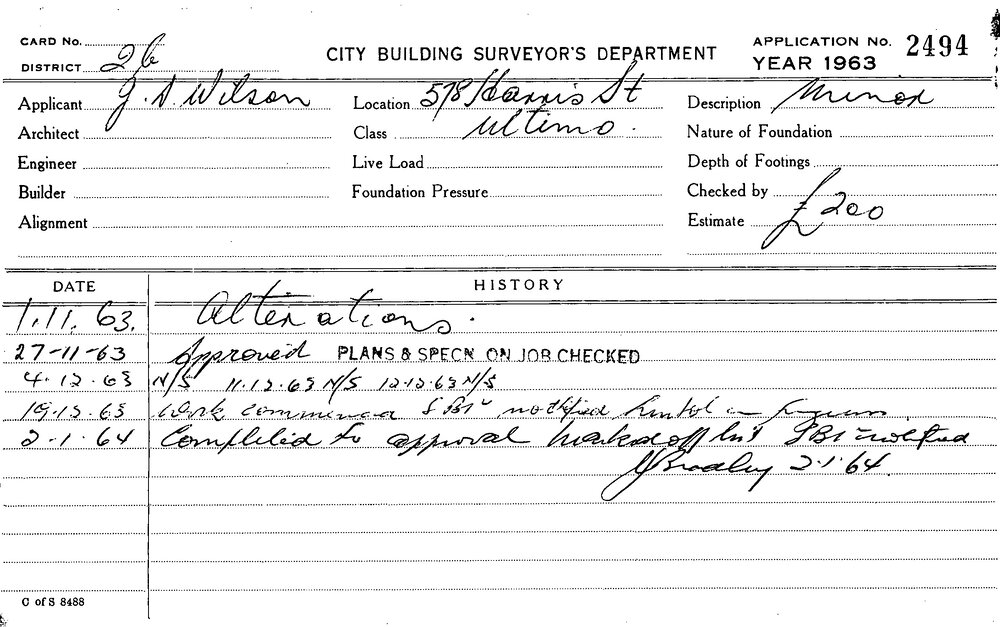 CARD No.
DISTRICT 26
CITY BUILDING SURVEYOR'S DEPARTMENT
APPLICATION No. 2494
YEAR 1963
Applicant J. D. Wilson
Location 578 Harris St
Description Minor
Architect
Class Ultimo.
Nature of Foundation
Engineer
Live Load
Depth of Footings
Builder
Foundation Pressure
Checked by
Alignment
Estimate £200
DATE HISTORY
1.11.63. Alterations.
27-11-63 Approved PLANS & SPECN. ON JOB CHECKED
4.12.63 N/S 11.12.63 N/S 12.12.63 N/S
19.12.63 Work commenced notified in
2-1-64 Completed to approval marked off list notified
J Bradley 2.1.64.
C of S 8488